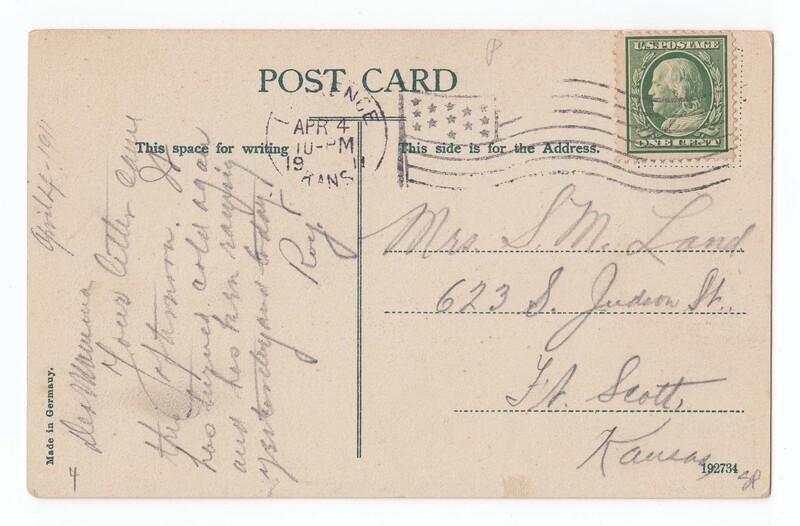 POST CARD
This space for writing
This side is for the Address.
U.S. POSTAGE
ONE CENT
ENCE
APR 4
10-PM
1911
KANS
April 4-1911
Dear Mamma
Your letter came
this afternoon. It
has turned cold again
and has been raining
yesterday and today.
Roy.
Mrs. S. M. Land
623 S. Judson St.
Ft. Scott,
Kansas
Made in Germany.
192734